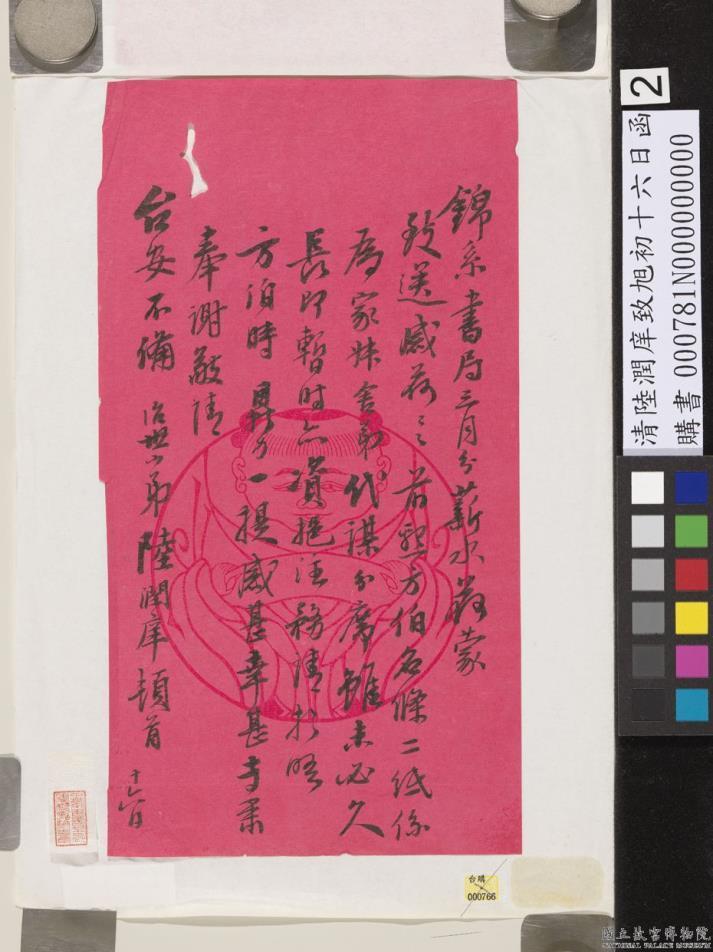 錦系書局三月分薪水并蒙
致送感荷之至前點方伯名條二紙係
為家妹舍弟代謀分席雖未必久
長即暫時亦資挹注務請於晤
方伯時 鼎力一提感甚幸甚專肅
奉謝敬請
台安不備 治世小弟陸潤庠頓首 十六日
2
清陸潤庠致旭初十六日函
購書 000781N0000000000
台購
000766
國立故宮博物院
NATIONAL PALACE MUSEUM